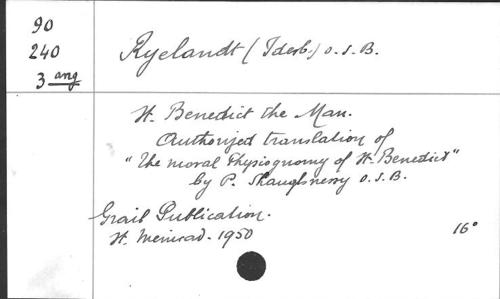 90
240
3 ang
Ryelandt (Idesb.) O.S.B.
St. Benedict the Man.
Authorized translation of
"The moral Physiognomy of St. Benedict"
by P. Shaughnessy O.S.B.
Grail Publication.
St. Meinrad. 1950
16°